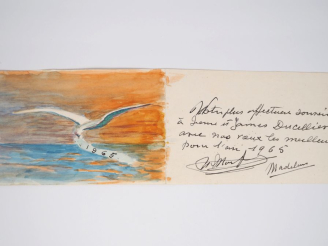 1965
Notre plus affectueux souvenir
à Irène et James Ducellier
avec nos vœux les meilleurs
pour l'an 1965
Madeleine